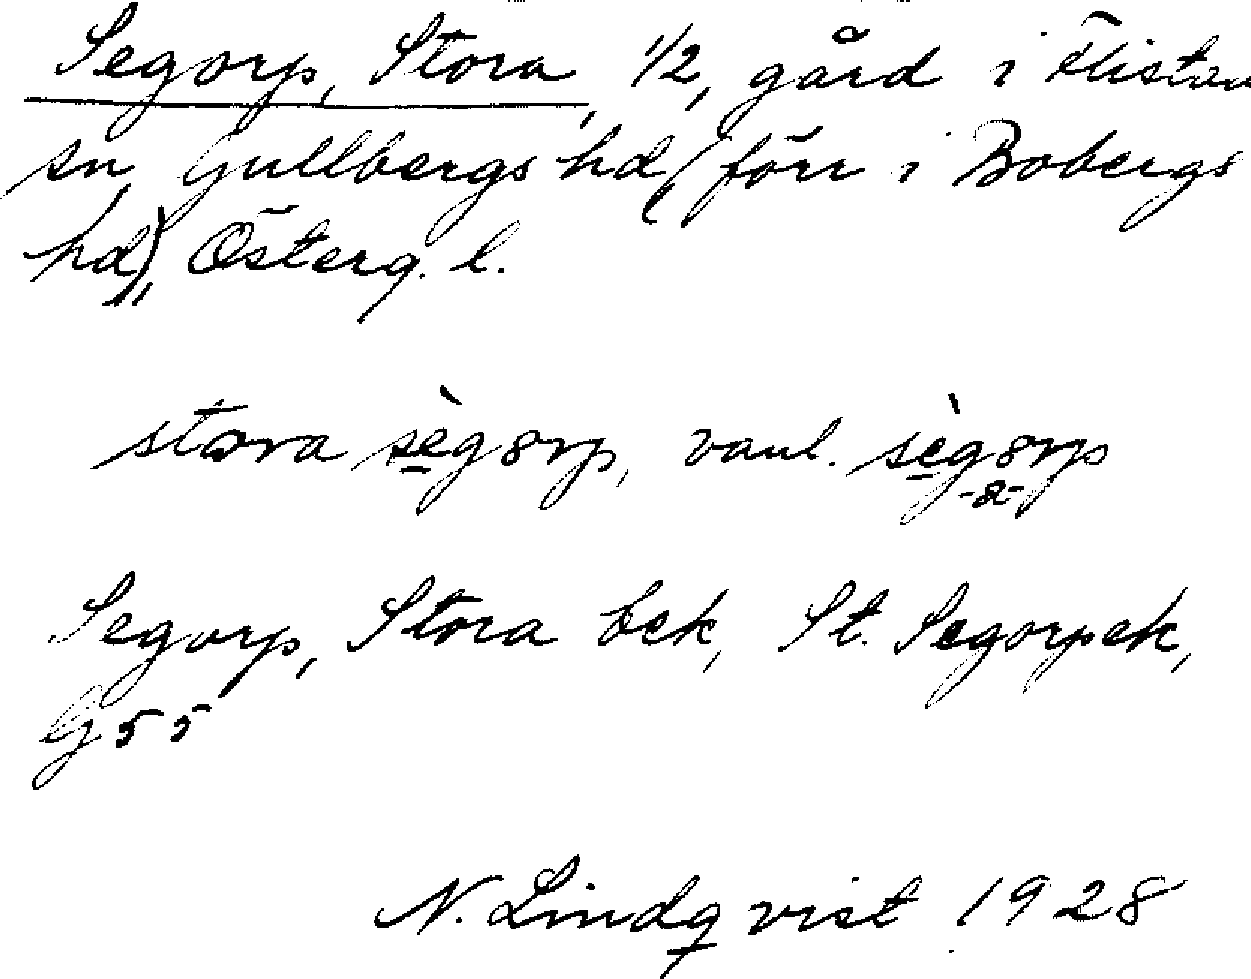 Segorp, Stora, 1/2, gård i Flistad
sn, Gullbergs hd, (förr i Bobergs
hd), Österg. l.
stora sègorp, vanl. sègorp
Segorp, Stora bek, St. Segorpek,
G 55
N. Lindqvist 1928